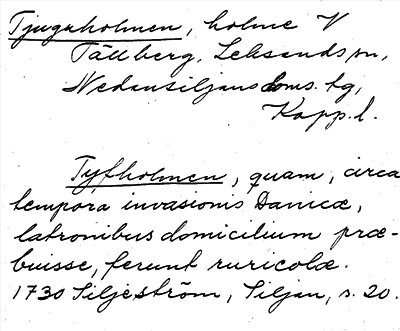 Tjuguholmen, holme V
Tällberg, Leksands sn,
Nedansiljans doms. tg,
Kopp. l.
Tyfholmen, quam, circa
tempora invasionis Danicæ,
latronibus domicilium præ-
buisse, ferunt ruricolæ.
1730 Siljeström, Siljan, s. 20.